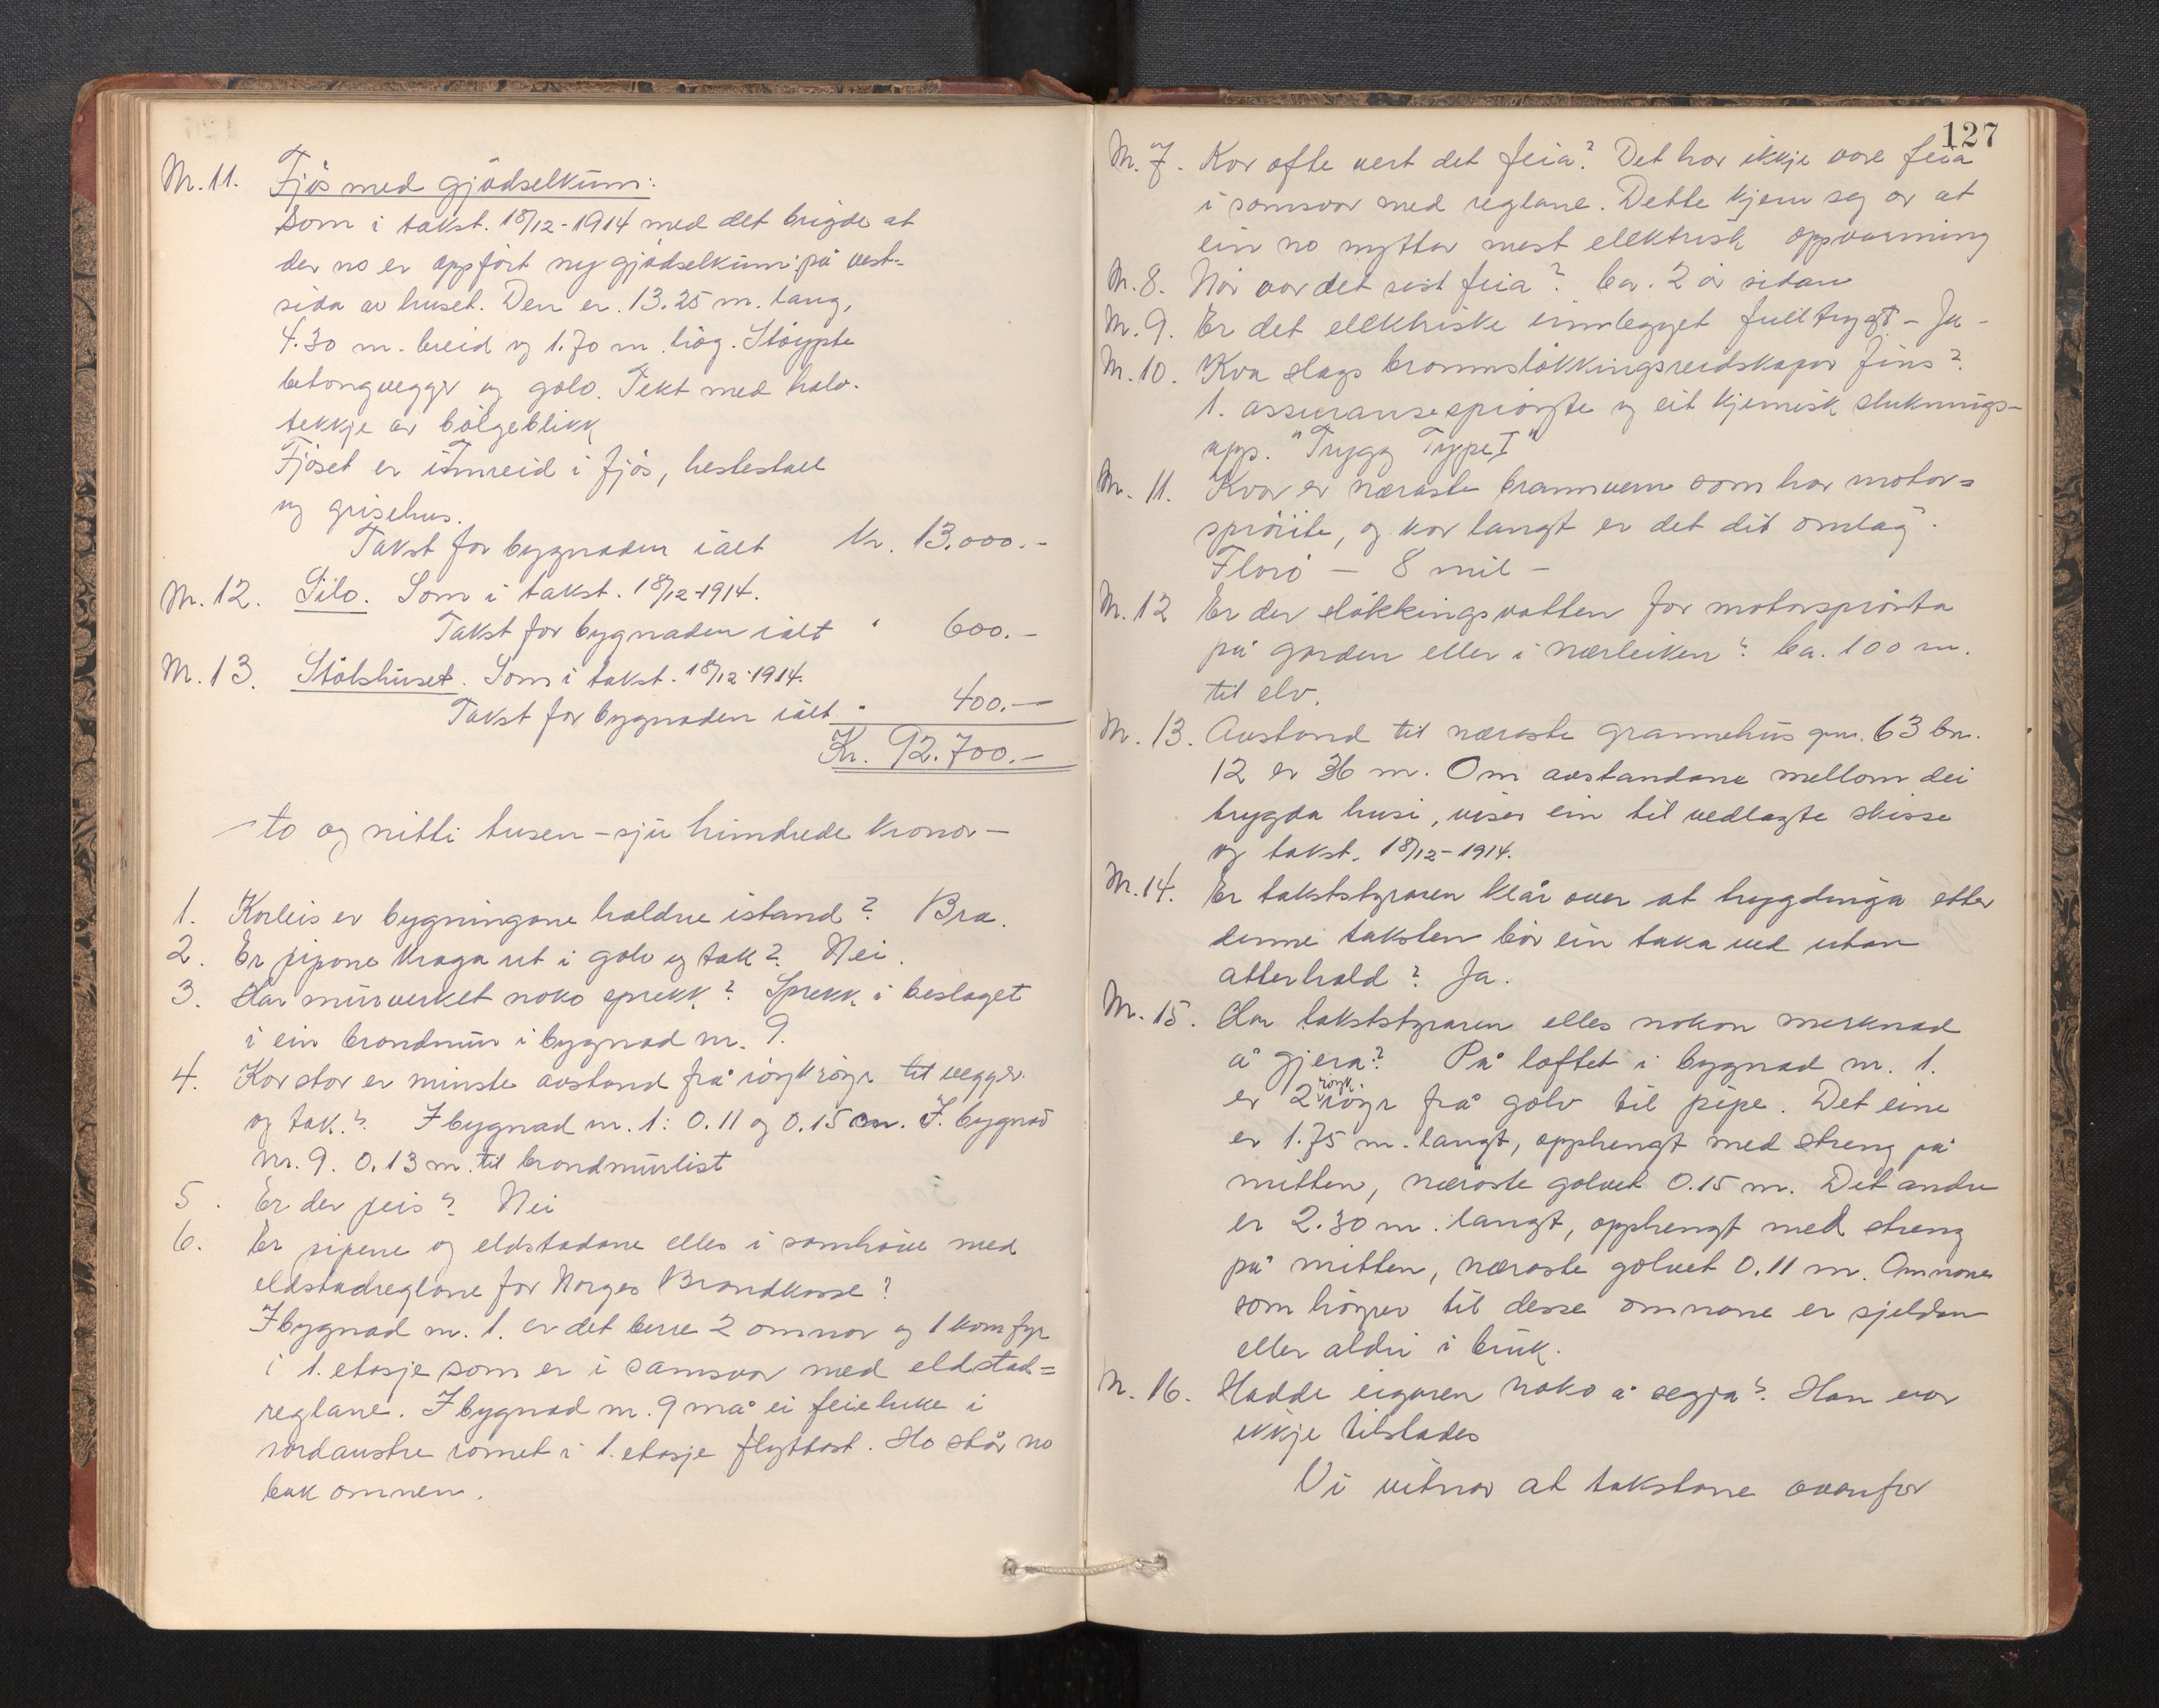 M. 11. Fjös med gjödselkum:
Som i takst. 18/12-1914 med det brigde at
der no er oppfört ny gjödselkum på vest-
sida av huset. Den er 13.25 m. lang,
4.30 m. breid og 1.70 m. hög. Stöypte
betongvegger og golv. Tekt med halv-
tekkje av bölgeblikk
Fjöset er innreid i fjös, hestestall
og grisehus.
Takst for bygnaden ialt Kr. 13.000.-
Nr. 12. Silo. Som i takst. 18/12-1914.
Takst for bygnaden ialt " 600.-
Nr. 13. Stölshuset. Som i takst. 18/12-1914.
Takst for bygnaden ialt " 400.-
Kr. 92.700.-
- to og nitti tusen - sju hundrede kronor -
1. Korleis er bygningane haldne istand? Bra.
2. Er pipone kraga ut i golv og tak? Nei.
3. Har murverket noko sprekk? Sprekk i beslaget
i ein brandmur i bygnad nr. 9.
4. Kor stor er minste avstand frå röykröyr til vegger
og tak? I bygnad nr. 1: 0.11 og 0.15 cm. I bygnad
Nr. 9. 0.13 m. til brandmurlist
5. Er der peis? Nei
6. Er pipene og eldstadane elles i samhöve med
eldstadreglane for Norges Brandkasse?
I bygnad nr. 1. er det berre 2 omnar og 1 komfyr
i 1. etasje som er i samsvar med eldstad=
reglane. I bygnad nr. 9 må ei feieluke i
nordaustre romet i 1. etasje flyttast. Ho står no
bak omnen.
127
Nr. 7. Kor ofte vert det feia? Det har ikkje vore feia
i samsvar med reglane. Dette kjem seg av at
ein no nyttar mest elektrisk oppvarming
Nr. 8. Når var det sist feia? Ca. 2 år sidan
Nr. 9. Er det elektriske innlegget fulltrygt - Ja -
Nr. 10. Kva slags brannslökkingsreidskapar fins?
1. assuransespröyte og eit kjemisk sluknings-
app. "Trygg Type I"
Nr. 11. Kvar er næraste brannvern som har motor=
spröite, og kor langt er det dit omlag.
Florö - 8 mil -
Nr. 12 Er der slökkingsvatten for motorspröyta
på garden eller i nærleiken? Ca. 100 m.
til elv.
Nr. 13. Avstand til næraste grannehus gnr. 63 bnr.
12 er 36 m. Om avstandane mellom dei
trygda husi, viser ein til vedlagte skisse
og takst. 18/12-1914.
Nr. 14. Er takststyraren klår over at trygdinga etter
denne taksten bör ein taka ved utan
atterhald? Ja.
Nr. 15. Har takststyraren elles nokon merknad
å gjera? På loftet i bygnad nr. 1.
er 2 röyk röyr frå golv til pipe. Det eine
er 1.75 m. langt, opphengt med streng på
mitten, næraste golvet 0.15 m. Det andre
er 2.30 m. langt, opphengt med streng
på mitten, næraste golvet 0.11 m. Omnane
som höyrer til desse omnane er sjeldan
eller aldri i bruk.
Nr. 16. Hadde eigaren noko å segja? Han var
ikkje tilstades
Vi vitnar at takstane ovanfor